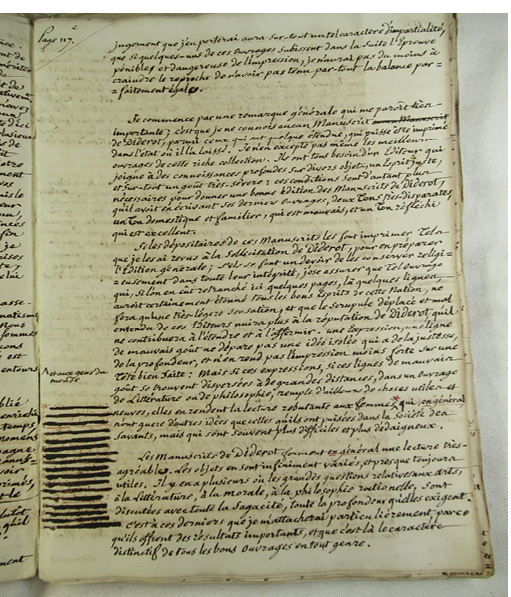 Page 117.e
jugement que j'en porterai aura sur-tout un tel caractère d'impartialité,
que si quelques-uns de ces ouvrages subissent dans la suite l'Epreuve
pénible et dangereuse de l'impression, je n'aurai pas du moins à
craindre le reproche de n'avoir pas tenu par-tout la balance par=
=faitement égale.
Je commence par une remarque générale qui me paroît très-
importante; c'est que je ne connois aucun Manuscrit
de Diderot, parmi ceux qui ont quelque étendue, qui puisse être imprimé
dans l'état où il l'a laissé. Je n'en excepte pas même les meilleurs
ouvrages de cette riche collection. Ils ont tous besoin d'un Editeur qui
joigne à des connoissances profondes sur divers objets, un Esprit juste,
et sur-tout un goût très-sévère: ces conditions sont d'autant plus
nécessaires pour donner une bonne édition des Manuscrits de Diderot,
qu'il avoit en écrivant ses derniers ouvrages, deux Tons très-disparates,
un Ton domestique et familier, qui est mauvais, et un Ton réfléchi
qui est excellent.
Si les dépositaires de ces Manuscrits les font imprimer Tels
que je les ai revus à la Sollicitation de Diderot, pour en préparer
l'Edition générale; s'ils se font un devoir de les conserver religi=
=eusement dans toute leur intégrité, j'ose assurer que Tel ouvrage
qui, si l'on en eût retranché ici quelques pages, là quelques lignes,
auroit certainement étonné tous les bons Esprits de cette Nation, ne
fera qu'une très-légère Sensation, et que le Scrupule déplacé et mal
entendu de ces Editeurs nuira plus à la réputation de Diderot, qu'il
ne contribuera à l'étendre et à l'affermir. une Expression, une ligne
de mauvais goût ne dépare pas une idée isolée qui a de la justesse,
de la profondeur, et n'en rend pas l'impression moins forte sur une
Tête bien faite: Mais si ces expressions, si ces lignes de mauvais
goût se trouvent dispersées à de grandes distances, dans un ouvrage
de Littérature ou de philosophie, rempli d'ailleurs de choses utiles et
neuves, elles en rendent la lecture rebutante aux qui, en général
n'ont guère d'autres idées que celles qu'ils ont puisées dans la Société des
Savants, mais qui sont souvent plus difficiles et plus dédaigneux.
Net aux gens du
monde
Les Manuscrits de Diderot forment en général une lecture très-
agréable. Les objets en sont infiniment variés, et presque toujours
utiles. Il y en a plusieurs où les grandes questions relatives aux arts,
à la Littérature, à la morale, à la philosophie rationelle, sont
discutées avec toute la Sagacité, toute la profondeur qu'elles exigent.
C'est à ces derniers que je m'attacherai particulièrement parce
qu'ils offrent des résultats importants, et que c'est là le caractère
distinctif de tous les bons Ouvrages en tout genre.